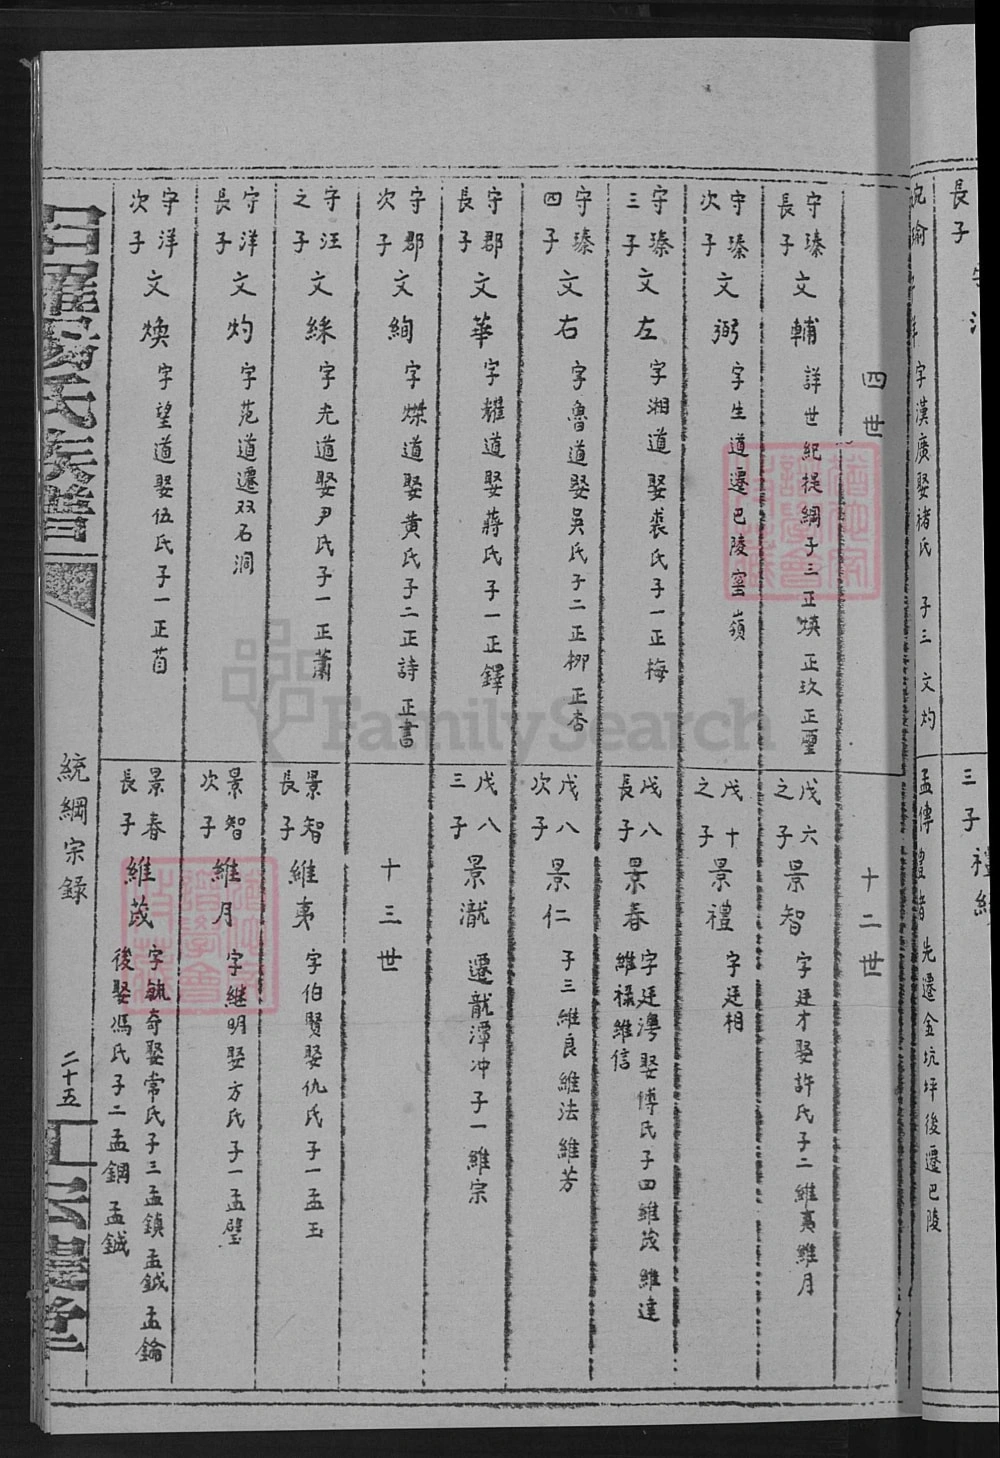 長子
三子
字漢廣娶褚氏 子三 文灼
孟傳
先遷金坑坪後遷巴陵
四世
守瑧長子文輔 詳世紀提綱子三正煐 正玖 正璽
守瑧次子文弼 字生道遷巴陵窑嶺
守瑧三子文左 字湘道娶裘氏子一正梅
守瑧四子文右 字魯道娶吳氏子二正柳 正杏
守郡長子文華 字耀道娶蔣氏子一正鐸
守郡次子文絢 字燦道娶黃氏子二正詩 正書
守汪之子文綵 字光道娶尹氏子一正蕭
守洋長子文灼 字范道遷双石洞
守洋次子文煥 字望道娶伍氏子一正苜
十二世
戊六之子景智 字廷才娶許氏子二維夷維月
戊十之子景禮 字廷相
戊八長子景春 字廷灣娶傅氏子四維茂 維達維祿維信
戊八次子景仁 子三維良維法維芳
戊八三子景瀧 遷龍潭冲子一維宗
十三世
景智長子維夷 字伯賢娶仇氏子一孟玉
景智次子維月 字继明娶方氏子一孟璧
景春長子維茂 字毓奇娶常氏子三孟鎮孟鉞孟錀
後娶馮氏子二孟鋼 孟鋮
統綱宗錄
二十五
FamilySearch